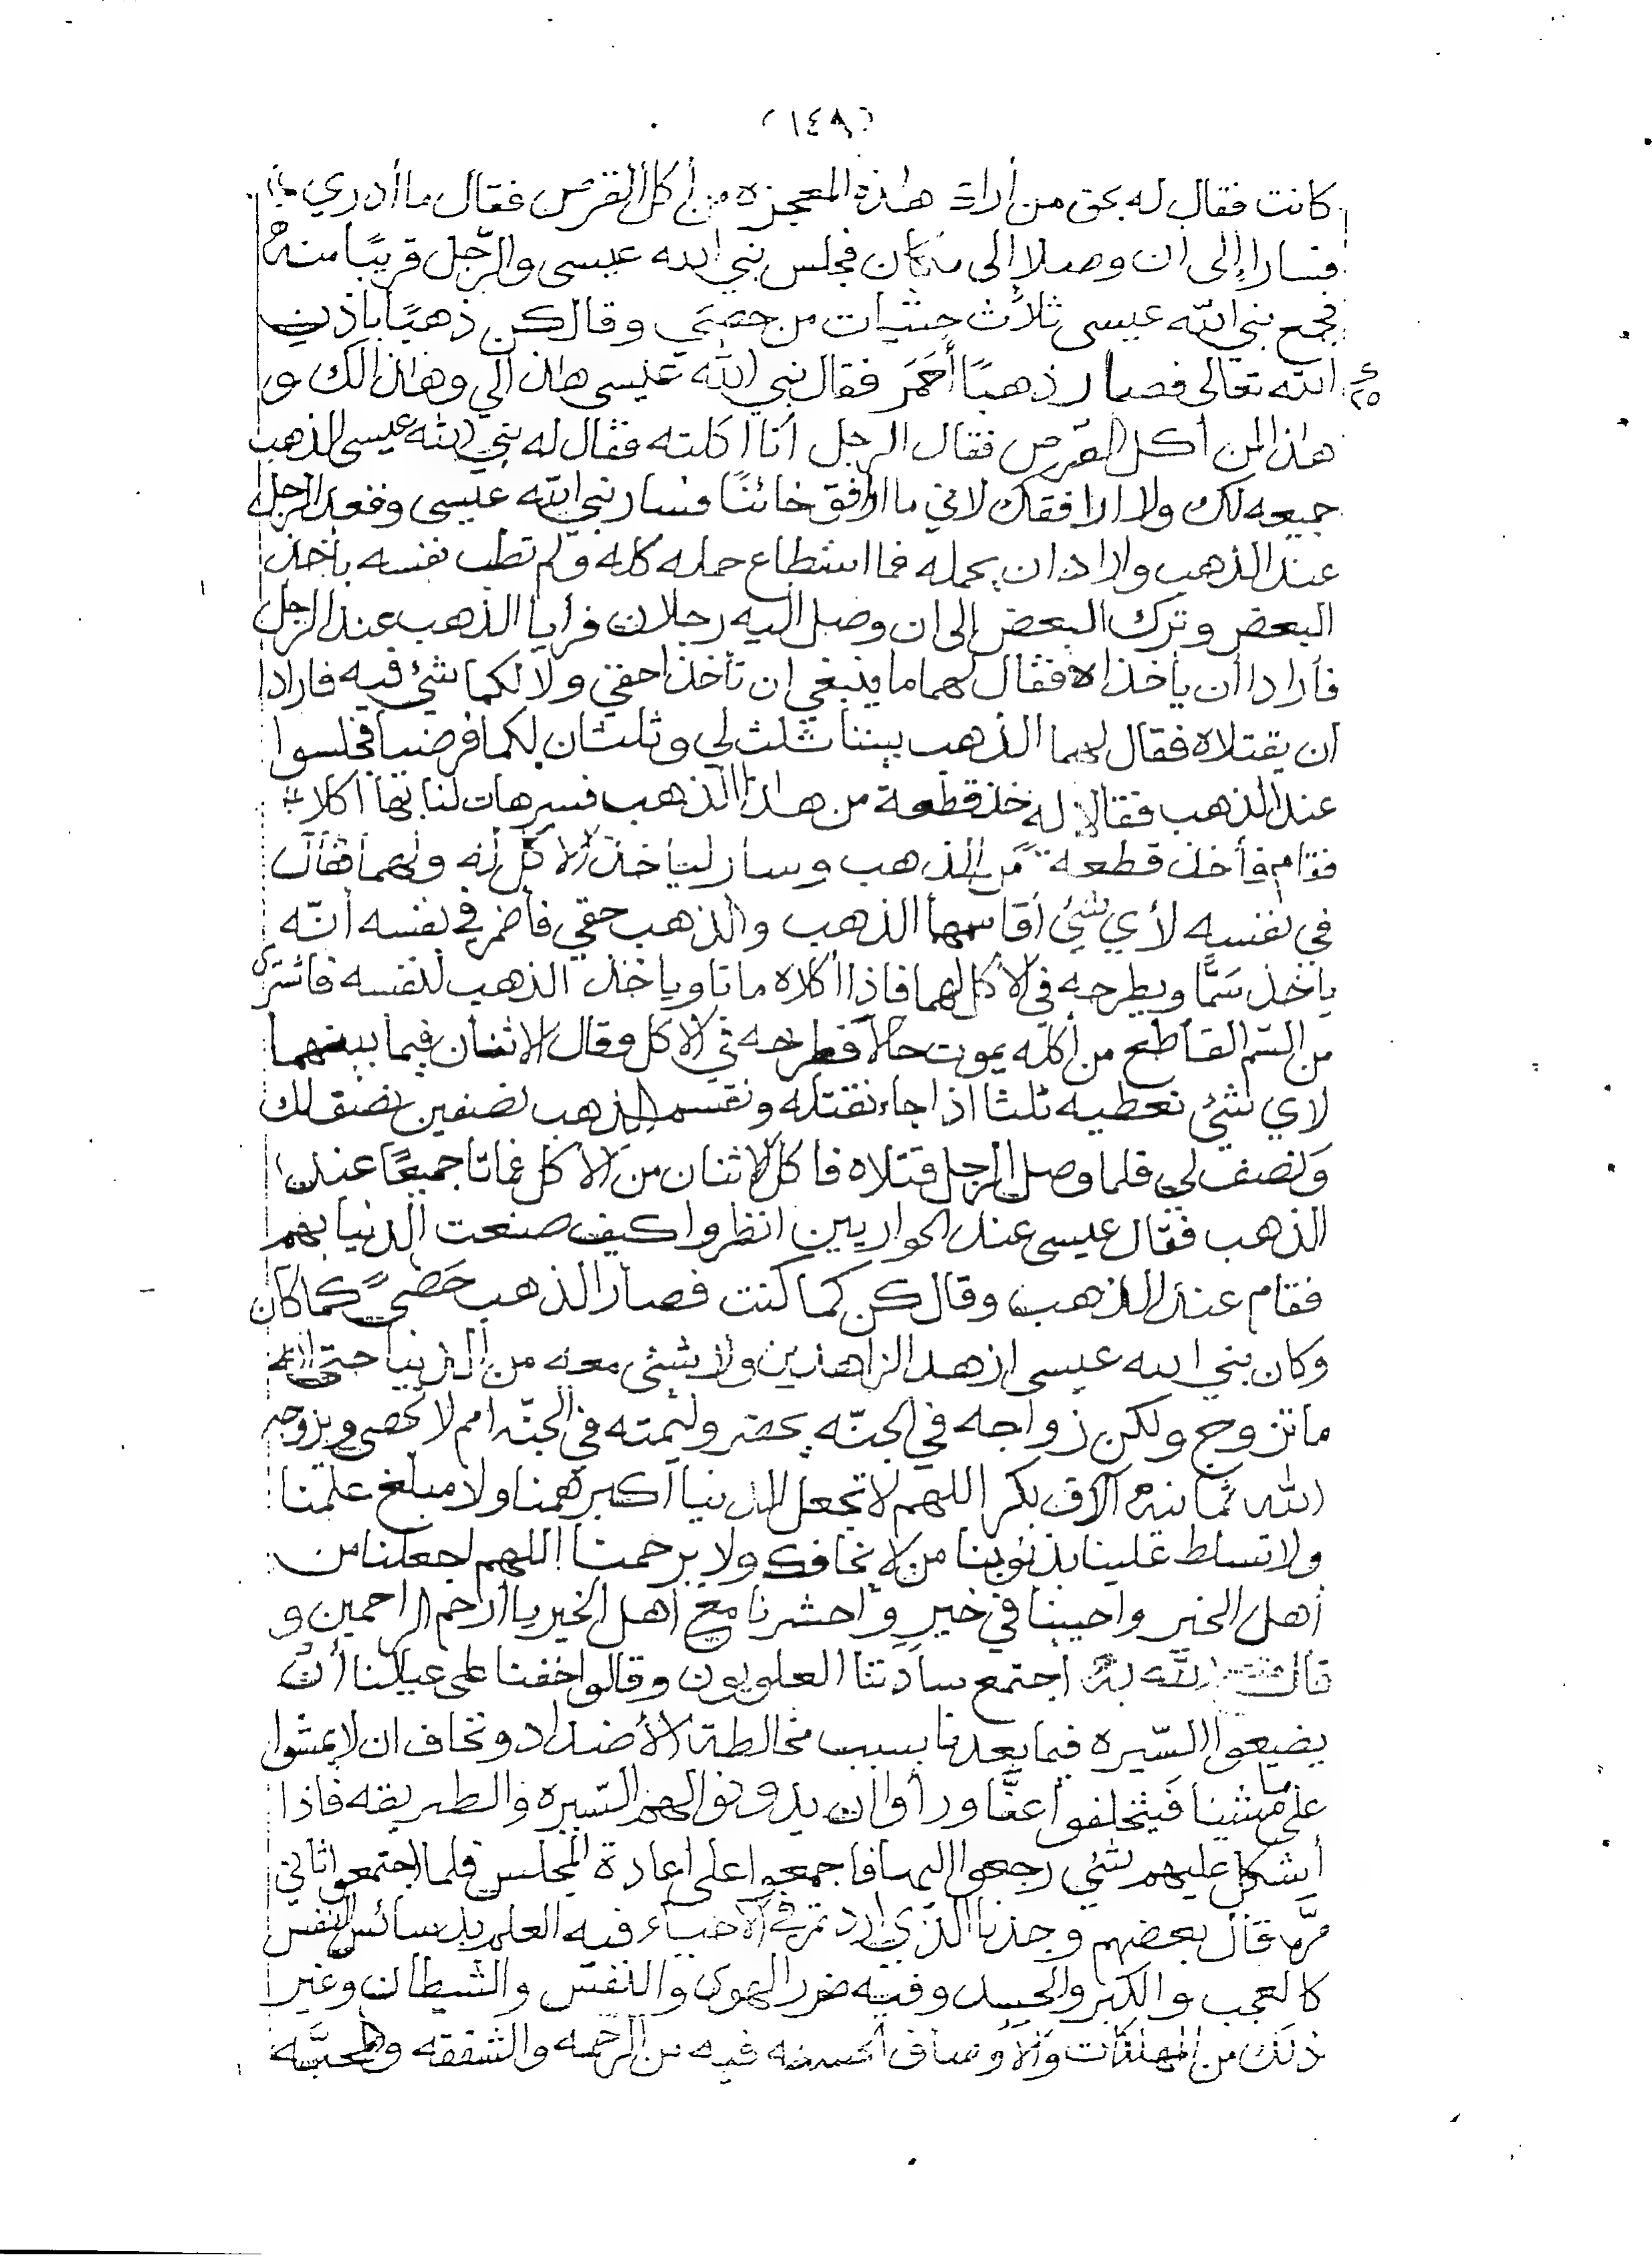 (١٤٩)
كانت فقال له بحق من أراك هاذه المعجزه من أكل القرص فقال ما أدري
فسارا إلى ان وصلا إلى مكان فجلس نبي الله عيسى والرّجل قريبًا منه
فجمع نبي الله عيسى ثلاث حثيات من حصى وقال كن ذهبًا باذن
الله تعالى فصار ذهبًا أحمَر فقال نبي الله عيسى هاذا لي وهاذا لك و
هاذا لمن أكل القرص فقال الرجل أنا اكلته فقال له نبي الله عيسى الذهب
جميعه لك ولا ارافقك لاني ما ارافق خائنًا فسار نبي الله عيسى وقعد الرجل
عند الذهب واراد ان يحمله فما استطاع حمله كله ولم تطب نفسه ياخذ
البعض وترك البعض إلى ان وصل اليه رجلان فرأيا الذهب عند الرجل
فأرادا أن يأخذاه فقال لهما ما ينبغي ان تأخذا حقي ولا لكما شئ فيه فارادا
ان يقتلاه فقال لهما الذهب بيننا ثلث لي وثلثان لكما فرضيا فجلسوا
عند الذهب فقالا له خذ قطعة من هاذا الذهب فسر هات لنا بها أكلا
فقام فأخذ قطعة من الذهب وسار ليأخذ الاكل له ولهما فقال
في نفسه لأي شئ أقاسمهما الذهب والذهب حقي فأضمر في نفسه أنّه
ياخذ سَمًّا ويطرحه في الاكل لهما فاذا أكلاه ماتا وياخذ الذهب لنفسه فاشترى
من السّم القاطع من أكله يموت حالاً فطرحه في الاكل وقال الاثنان فيما بينهما
لاي شئ نعطيه ثلثا اذا جاء نقتله ونقسم الذهب نصفين نصف لك
ونصف لي فلما وصل الرجل قتلاه فاكل الاثنان من الاكل فماتا جميعًا عند
الذهب فقال عيسى عند الحواريين انظروا كيف صنعت الدنيا بهم
فقام عند الذهب وقال كن كما كنت فصار الذهب حَصىً كما كان
وكان نبي الله عيسى ازهد الزاهدين ولا شئ معه من الدنيا حتى انه
ما تزوج ولكن زواجه في الجنّه يحضر وليمته في الجنّه امم لا تحصى ويزوجه
الله ثمانية آلاف بكر اللهم لا تجعل الدنيا أكبر همنا ولا مبلغ علمنا
ولا تسلط علينا بذنوبنا من لا يخافك ولا يرحمنا اللهم اجعلنا من
أهل الخير واحيينا في خير واحشرنا مع أهل الخير يا أرحم الراحمين و
قال الله اجتمع سادتنا العلويون وقالوا خفنا على عيالنا أن
يضيعوا السّيره فيما بعدنا بسبب مخالطة الأضداد ونخاف ان لا يمشوا
على ما مشينا فيتخلفوا عنّا ورأوا ان يدونوا لهم السّيره والطريقه فاذا
أشكل عليهم شئ رجعوا اليها فاجمعوا على إعادة المجلس فلما اجتمعوا ثاني
مرّه قال بعضهم وجدنا الذي اردتم في الاحياء فيه العلم بدسائس النفس
كالعجب والكبر والحسد وفيه ضرر الهوى والنفس والشيطان وغير
ذلك من المهلكات والاوصاف الحسنه فيه من الرحمه والشفقه والمحبّه